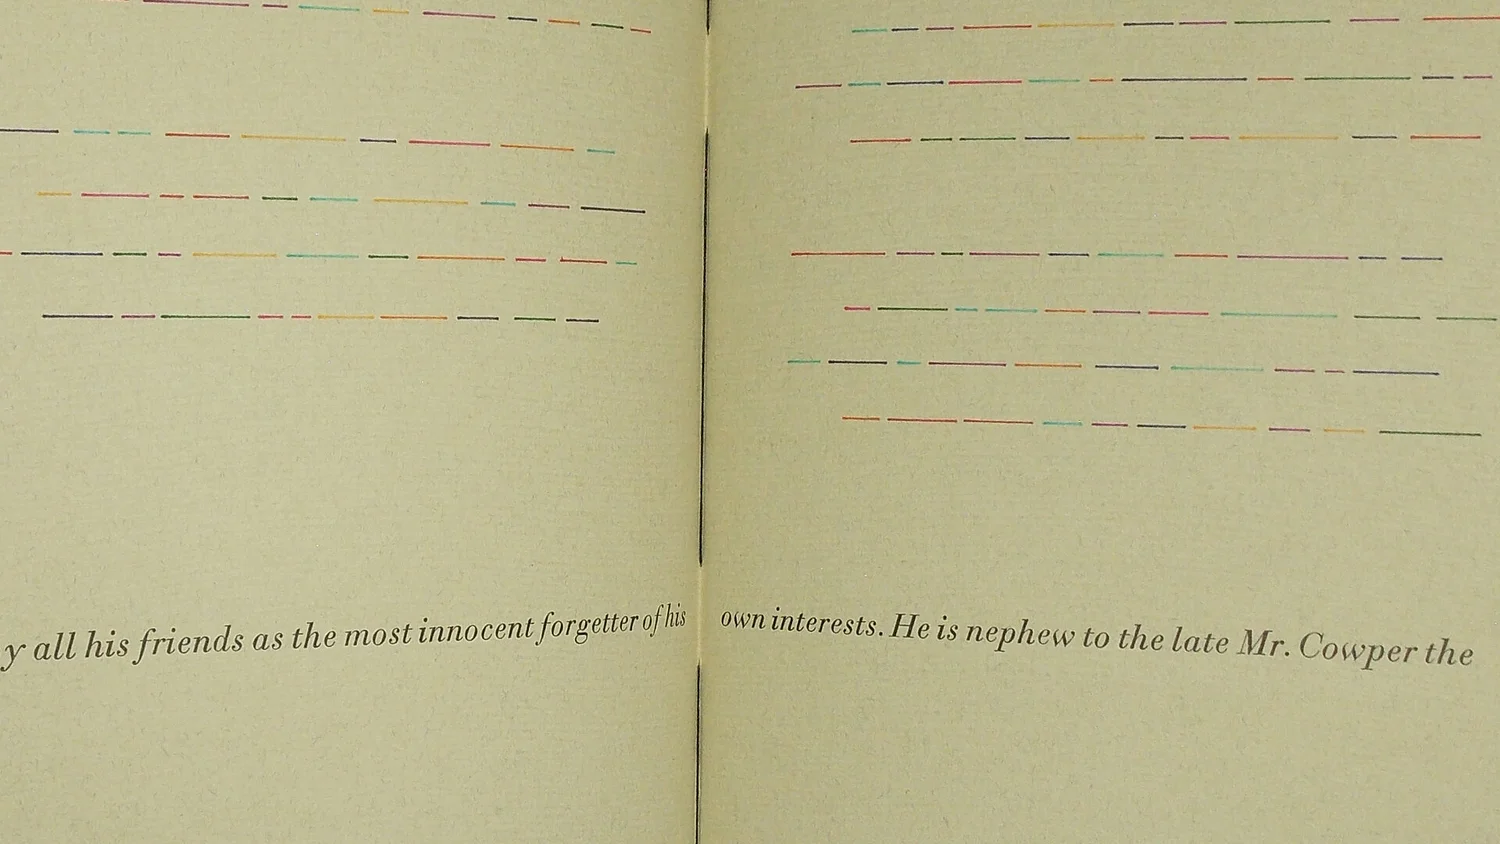 y all his friends as the most innocent forgetter of his own interests. He is nephew to the late Mr. Cowper the